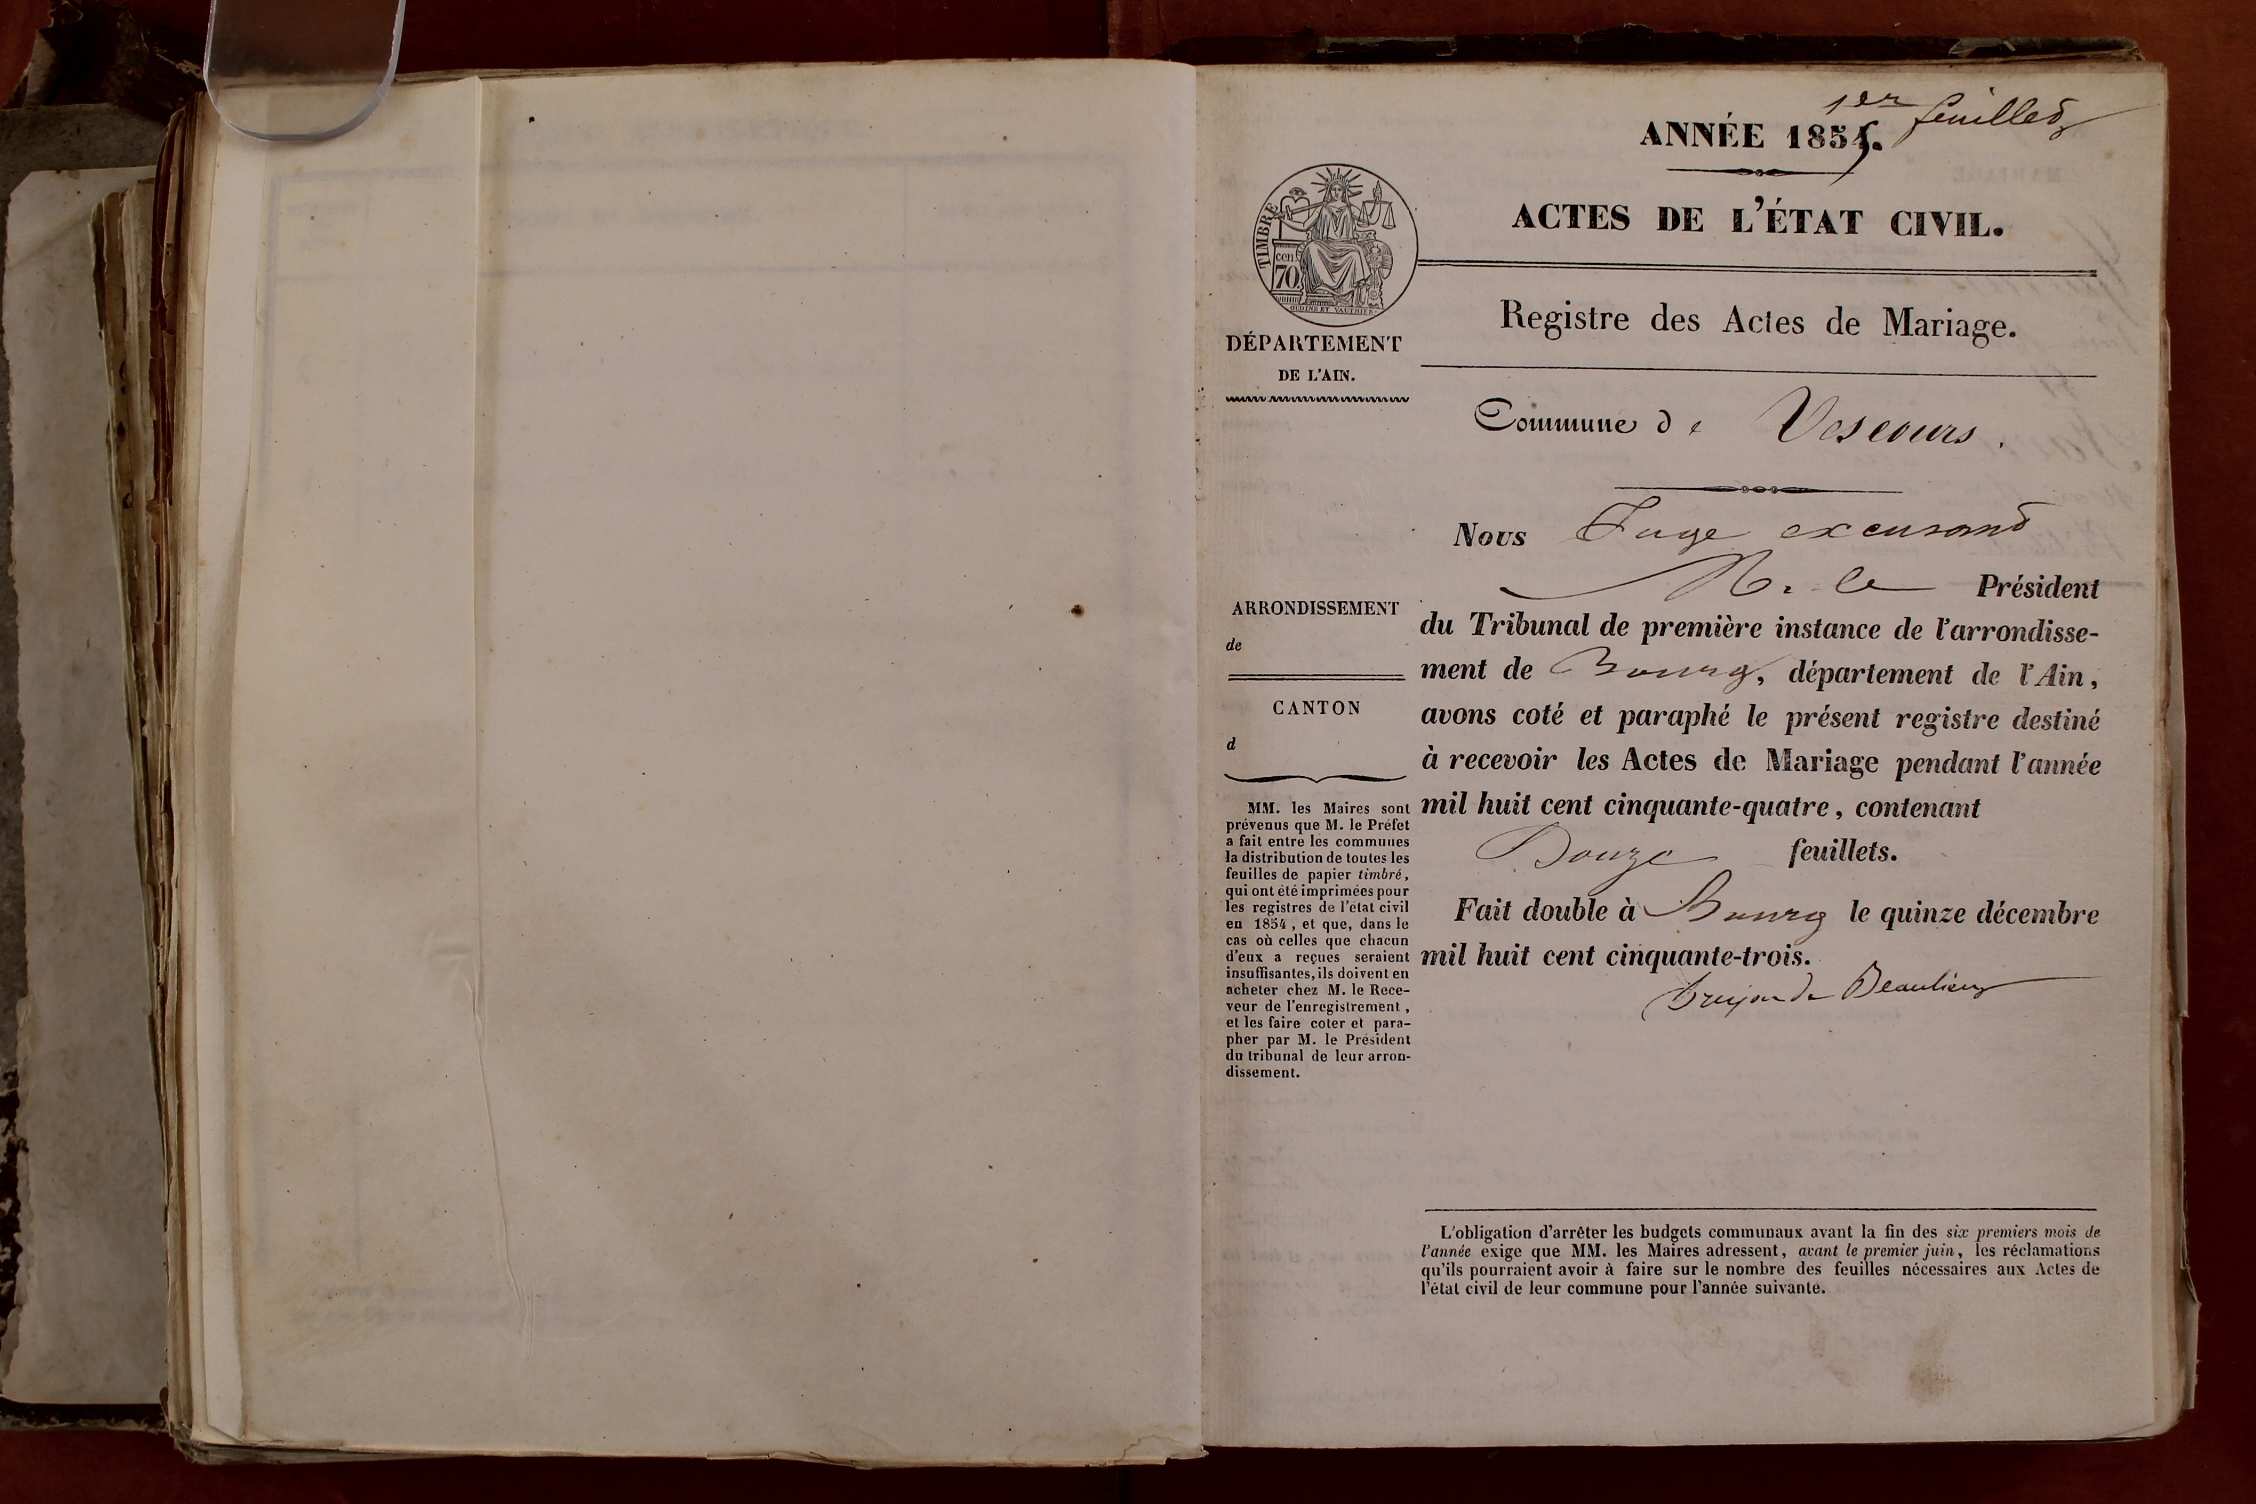 1er feuillet
ANNÉE 1854.
ACTES DE L'ÉTAT CIVIL.
TIMBRE
cen
70
Registre des Actes de Mariage.
DÉPARTEMENT
DE L'AIN.
Commune de Vescours.
Nous Juge excusant
M. le Président
du Tribunal de première instance de l'arrondisse-
ment de Bourg, département de l'Ain,
avons coté et paraphé le présent registre destiné
à recevoir les Actes de Mariage pendant l'année
mil huit cent cinquante-quatre, contenant
Douze feuillets.
Fait double à Bourg le quinze décembre
mil huit cent cinquante-trois.
de Beaulieu
ARRONDISSEMENT
de
CANTON
d
MM. les Maires sont
prévenus que M. le Préfet
a fait entre les communes
la distribution de toutes les
feuilles de papier timbré,
qui ont été imprimées pour
les registres de l'état civil
en 1854, et que, dans le
cas où celles que chacun
d'eux a reçues seraient
insuffisantes, ils doivent en
acheter chez M. le Rece-
veur de l'enregistrement,
et les faire coter et para-
pher par M. le Président
du tribunal de leur arron-
dissement.
L'obligation d'arrêter les budgets communaux avant la fin des six premiers mois de
l'année exige que MM. les Maires adressent, avant le premier juin, les réclamations
qu'ils pourraient avoir à faire sur le nombre des feuilles nécessaires aux Actes de
l'état civil de leur commune pour l'année suivante.